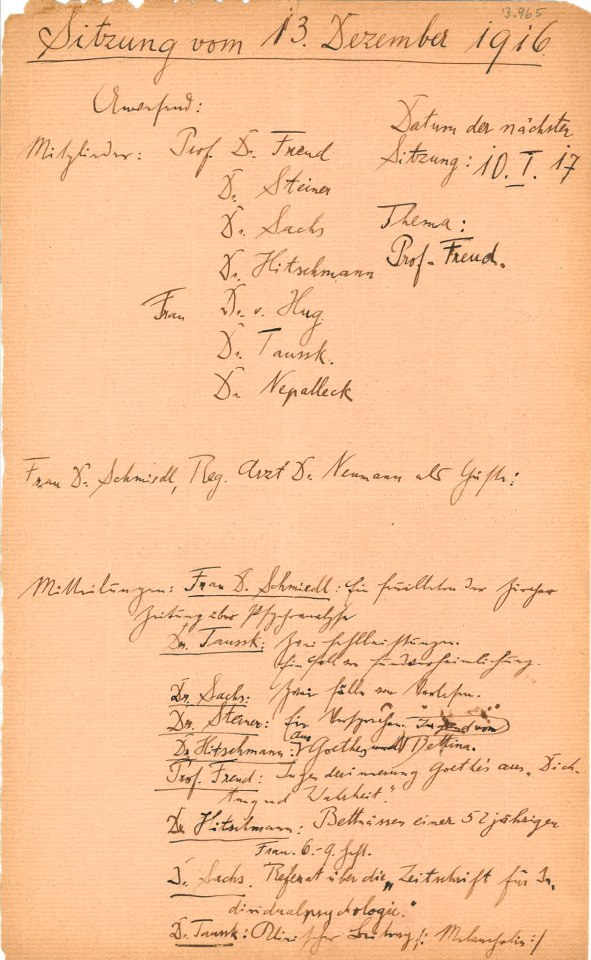 13.965
Sitzung vom 13. Dezember 1916
Anwesend:
Mitglieder: Prof. Dr. Freud
Dr. Steiner
Dr. Sachs
Dr. Hitschmann
Frau Dr. v. Hug
Dr. Tausk.
Dr. Nepalleck
Datum der nächsten
Sitzung: 10. I. 17
Thema:
Prof. Freud.
Frau Dr. Schmiedl, Reg. Arzt Dr. Neumann als Gäste:
Mitteilungen: Frau D. Schmiedl: Ein Feuilleton der Züricher
Zeitung über Psychoanalyse
Dr. Tausk: Zwei Fehlleistungen.
Ein Fall von
Dr. Sachs: Zwei Fälle von Verlesen.
Dr. Steiner: Ein Versprechen.
Dr. Hitschmann: aus Goethe und Bettina.
Prof. Freud: Jugenderinnerung Goethes aus „Dich-
tung und Wahrheit."
Dr. Hitschmann: Bettnässen einer 52 jährigen
Frau. 6.-9. Heft.
D. Sachs. Referat über die „Zeitschrift für In-
dividualpsychologie."
D. Tausk: Klinischer Beitrag /: Melancholie :/